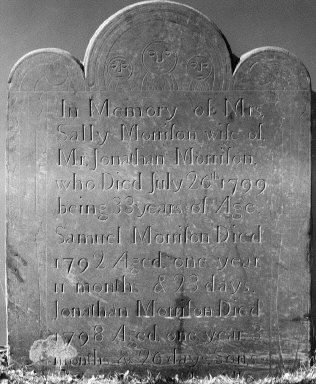 In Memory of Mrs.
Sally Morrison wife of
Mr. Jonathan Morrison.
who Died July 26th 1799
being 33 years of Age.
Samuel Morrison Died
1792 Aged, one year
11 months & 23 days.
Jonathan Morrison Died
1798 Aged, one year 3
months & 26 days sons